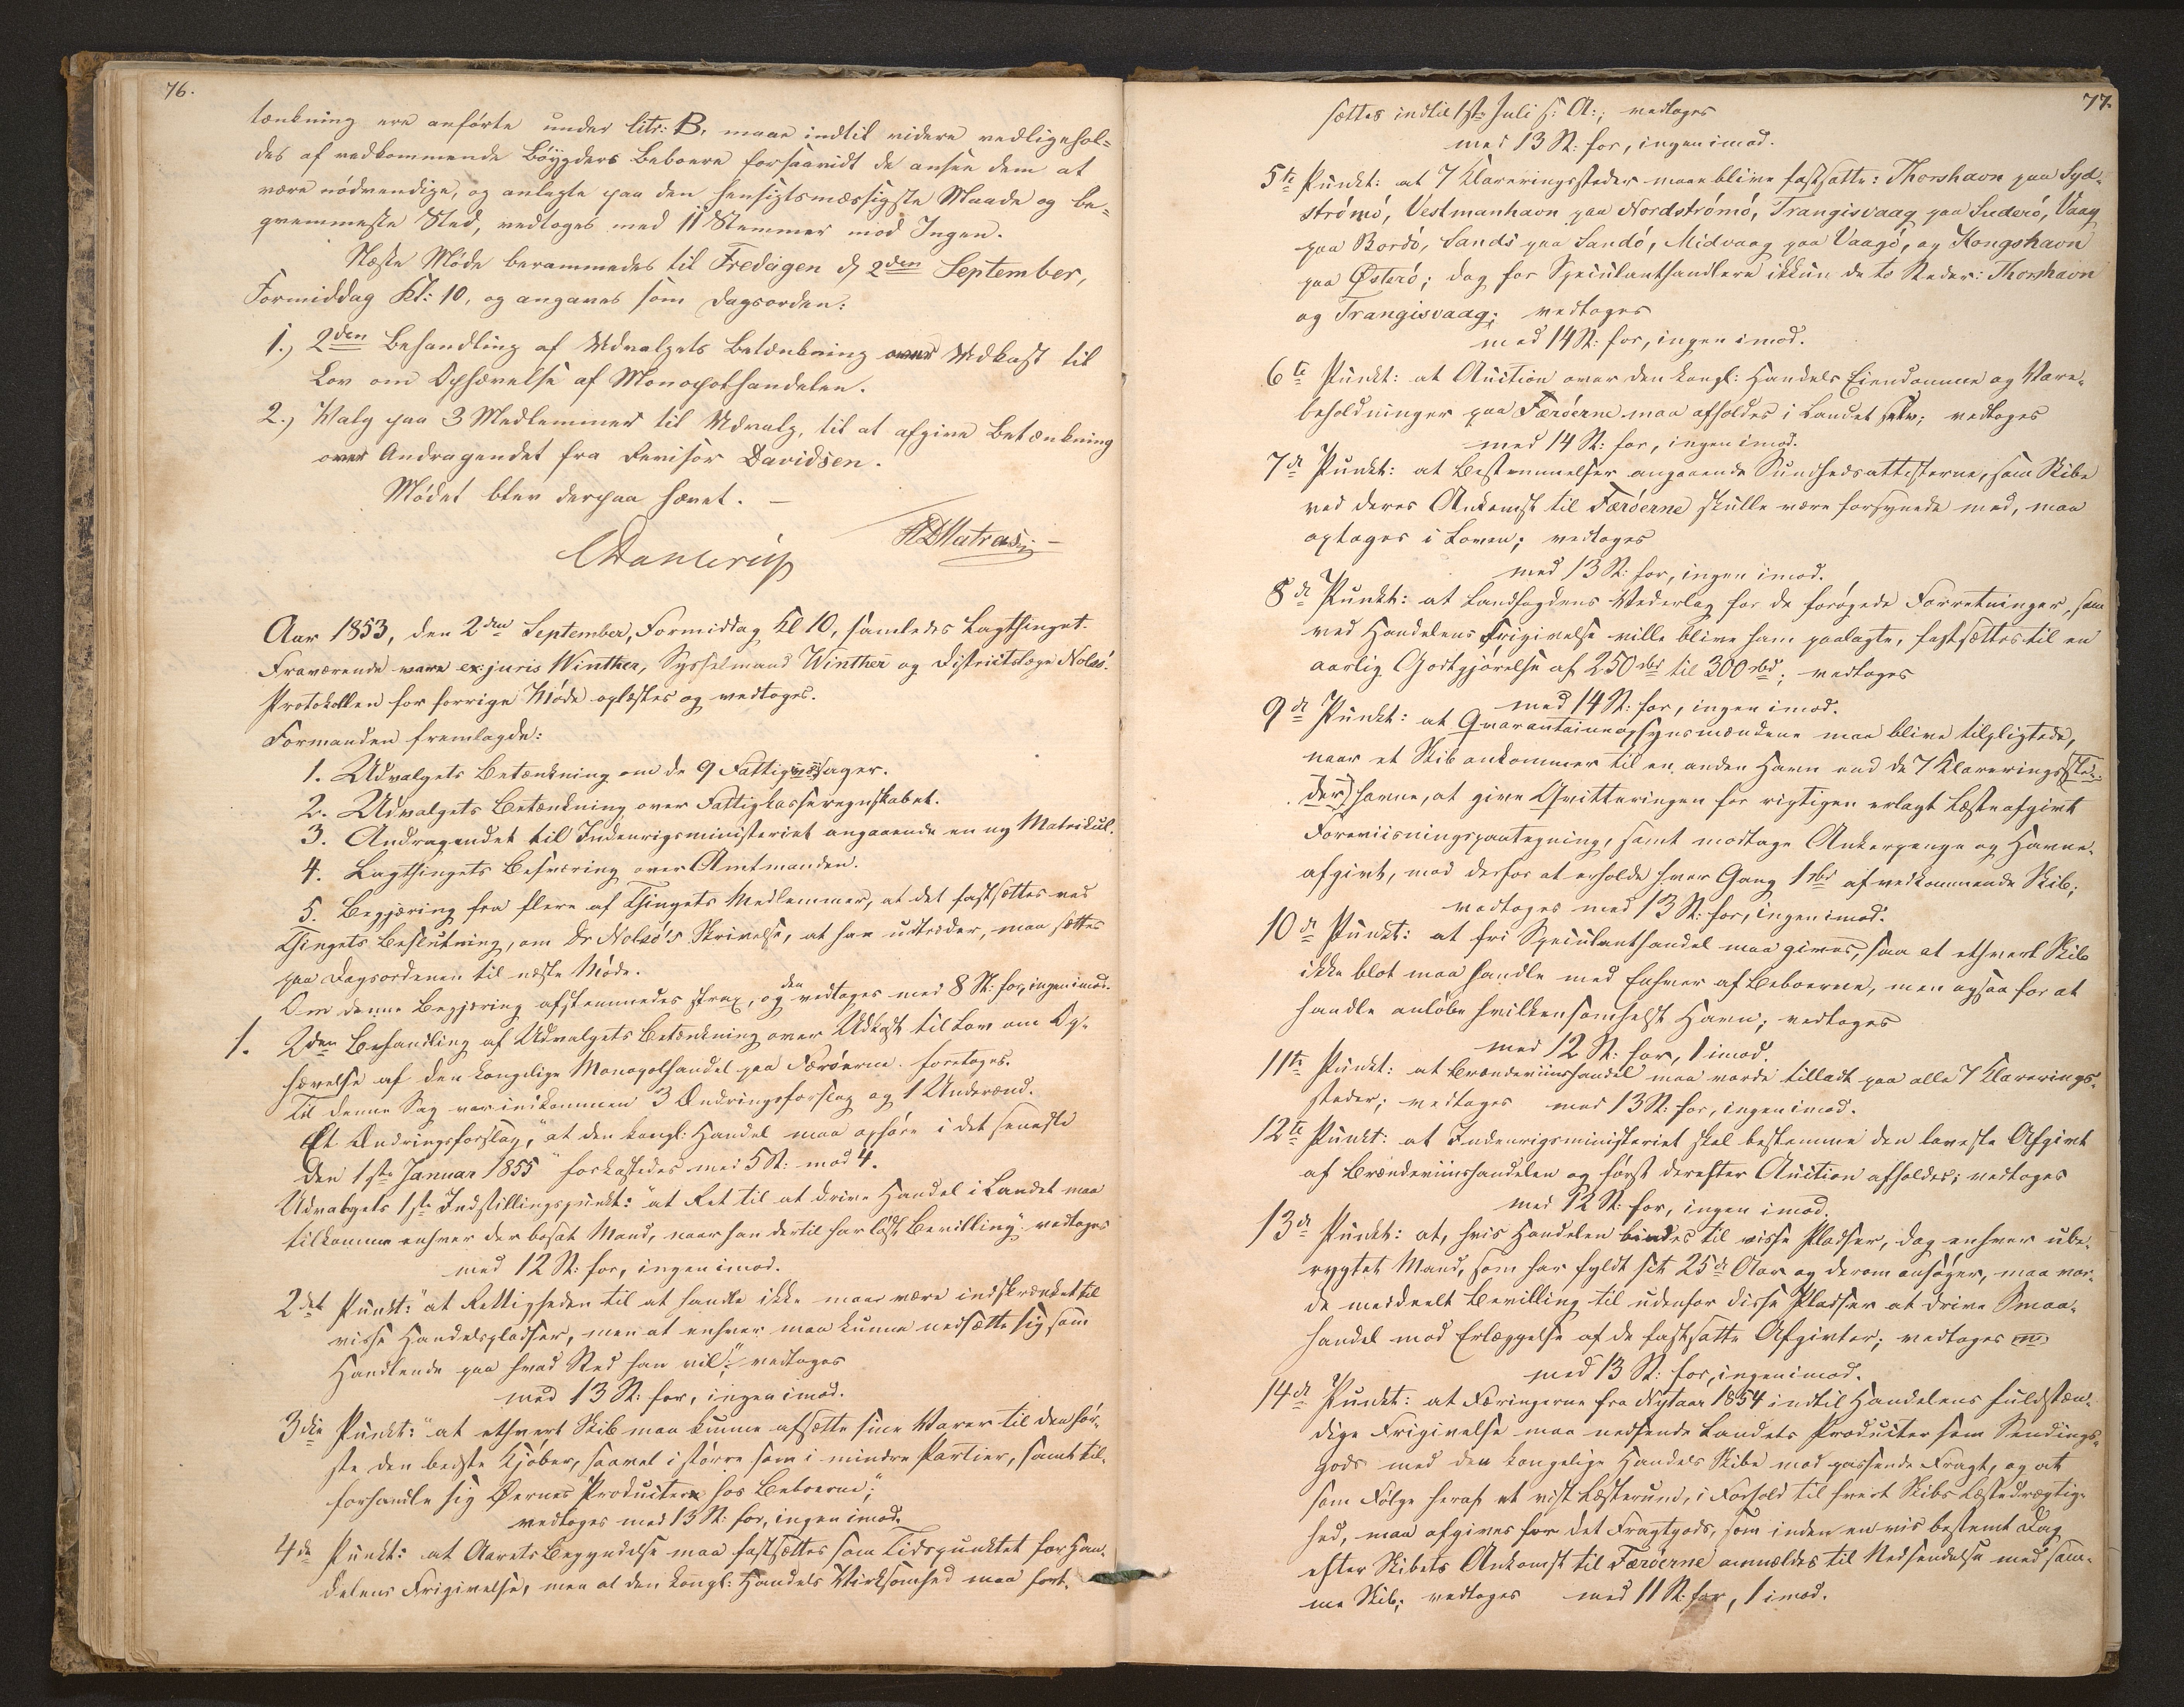 76.
tænkning ere anførte under litr: B, maae indtil videre vedligehol-
des af vedkommende Bøygders Beboere forsaavidt de ansee dem at
være nødvendige, og anlagte paa den hensigtsmæssigste Maade og be-
qvemmeste Sted, vedtoges med 11 Stemmer mod Ingen.
Næste Møde berammedes til Fredagen d. 2den September,
Formiddag Kl: 10, og angaves som Dagsorden:
1.) 2den Behandling af Udvalgets Betænkning over Udkast til
Lov om Ophævelse af Monopolhandelen.
2.) Valg paa 3 Medlemmer til Udvalg, til at afgive Betænkning
over Andragendet fra Revisor Davidsen.
Mødet blev derpaa hævet. –
CDahlerup HDMatras
Aar 1853, den 2den September, Formiddag Kl 10, samledes Lagthinget.
Fraværende vare ex: juris Winther, Sysselmand Winther og Districtslæge Nolsø.
Protokollen for forrige Møde oplæstes og vedtoges.
Formanden fremlagde:
1. Udvalgets Betænkning om de 9 Fattigsager.
2. Udvalgets Betænkning over Fattigkasseregnskabet.
3. Andragendet til Indenrigsministeriet angaaende en ny Matrikul.
4. Lagthingets Besværing over Amtmanden.
5. Begjæring fra flere af Thingets Medlemmer, at det fastsættes ved
Thingets Beslutning, om Dr Nolsø's Skrivelse, at han udtræder, maa sættes
paa Dagsordenen til næste Møde.
Om denne Begjæring afstemmedes strax, og den vedtoges med 8 St: for, ingen imod.
1. 2den Behandling af Udvalgets Betænkning over Udkast til Lov om Op-
hævelse af den kongelige Monopolhandel paa Færøerne foretoges.
Til denne Sag var indkommen 3 Ændringsforslag og 1 Underænd.
Et Ændringsforslag, "at den kongl: Handel maa ophøre i det seneste
den 1ste Januar 1855" forkastedes med 5 St: mod 4.
Udvalgets 1ste Indstillingspunkt: "at Ret til at drive Handel i Landet maa
tilkomme enhver der bosat Mand, naar han dertil har løst Bevilling" vedtoges
med 12 St: for, ingen imod.
2det Punkt: "at Rettigheden til at handle ikke maa være indskrænket til
visse Handelspladser, men at enhver maa kunne nedsætte sig som
Handlende paa hvad Sted han vil"; vedtoges
med 13 St: for, ingen imod.
3die Punkt: "at ethvert Skib maa kunne afsætte sine Varer til den før-
ste den bedste Kjøber, saavel i større som i mindre Partier, samt til-
forhandle sig Øernes Producter hos Beboerne";
vedtoges med 13 St: for, ingen imod.
4de Punkt: at Aarets Begyndelse maa fastsættes som Tidspunktet for Han-
delens Frigivelse, men at den kongl: Handels Virksomhed maa fort-
77.
sættes indtil 1ste Juli s: A:; vedtoges
med 13 St: for, ingen imod.
5te Punkt: at 7 Klareringssteder maae blive fastsatte: Thorshavn paa Syd-
strømø, Vestmanhavn paa Nordstrømø, Trangisvaag paa Suderø, Vaag
paa Bordø, Sands paa Sandø, Midvaag paa Vaagø, og Kongshavn
paa Østerø; dog for Speculanthandlere ikkun de to Steder: Thorshavn
og Trangisvaag; vedtoges
med 14 St: for, ingen imod.
6te Punkt: at Auction over den kongl: Handels Eiendomme og Vare-
beholdninger paa Færøerne maa afholdes i Landet selv; vedtoges
med 14 St: for, ingen imod.
7de Punkt: at Bestemmelser angaaende Sundhedsattesterne, som Skibe
ved deres Ankomst til Færøerne skulle være forsynede med, maa
optages i Loven; vedtoges
med 13 St: for, ingen imod.
8de Punkt: at Landfogdens Vederlag for de forøgede Forretninger, som
ved Handelens Frigivelse ville blive ham paalagte, fastsættes til en
aarlig Godtgjørelse af 250 rbd til 300 rbd; vedtoges
med 14 St: for, ingen imod.
9de Punkt: at Qvarantaineopsynsmændene maa blive tilpligtede,
naar et Skib ankommer til en anden Havn end de 7 Klarerings(ste-
der) havne, at give Qvitteringen for rigtigen erlagt Læsteafgivt
Foreviisningspaategning, samt modtage Ankerpenge og Havne-
afgivt, mod derfor at erholde hver Gang 1 rbd af vedkommende Skib;
vedtoges med 13 St: for, ingen imod.
10de Punkt: at fri Speculanthandel maa gives, saa at ethvert Skib
ikke blot maa handle med Enhver af Beboerne, men ogsaa for at
handle anløbe hvilkensomhelst Havn; vedtoges
med 12 St: for, 1 imod.
11te Punkt: at Brændeviinshandel maa vorde tilladt paa alle 7 Klarerings-
steder; vedtoges med 13 St: for, ingen imod.
12te Punkt: at Indenrigsministeriet skal bestemme den laveste Afgivt
af Brændeviinshandelen og først derefter Auction afholdes; vedtoges
med 12 St: for, ingen imod.
13de Punkt: at, hvis Handelen bindes til visse Pladser, dog enhver ube-
rygtet Mand, som har fyldt sit 25de Aar og derom ansøger, maa vor-
de meddeelt Bevilling til udenfor disse Pladser at drive Smaa-
handel mod Erlæggelse af de fastsatte Afgivter; vedtoges
med 13 St: for, ingen imod.
14de Punkt: at Færingerne fra Nytaar 1854 indtil Handelens fuldstæn-
dige Frigivelse maa nedsende Landets Producter som Sendings-
gods med den kongelige Handels Skibe mod passende Fragt, og at
som Følge heraf et vist Læsterum, i Forhold til hvert Skibs Læstedrægtig-
hed, maa afgives for det Fragtgods, som inden en vis bestemt Dag
efter Skibets Ankomst til Færøerne anmældes til Nedsendelse med sam-
me Skib; vedtoges med 11 St: for, 1 imod.